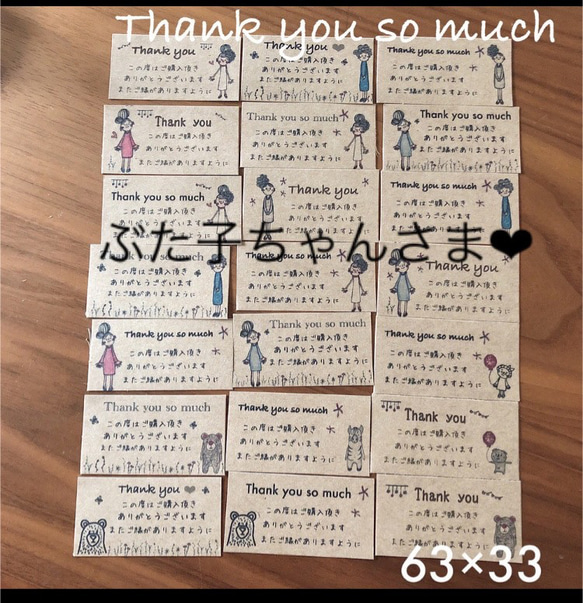 Thank you so much
Thank you
この度はご購入頂き
ありがとうございます
またご縁がありますように
Thank you ❤
この度はご購入頂き
ありがとうございます
またご縁がありますように
Thank you so much
この度はご購入頂き
ありがとうございます
またご縁がありますように
Thank you
この度はご購入頂き
ありがとうございます
またご縁がありますように
Thank you so much
この度はご購入頂き
ありがとうございます
またご縁がありますように
Thank you so much
この度はご購入頂き
ありがとうございます
またご縁がありますように
Thank you so much
この度はご購入頂き
ありがとうございます
またご縁がありますように
Thank you
この度はご購入頂き
ありがとうございます
またご縁がありますように
Thank you so much
この度はご購入頂き
ありがとうございます
またご縁がありますように
ぶた子ちゃんさま❤
Thank you so much
この度はご購入頂き
ありがとうございます
またご縁がありますように
Thank you so much
この度はご購入頂き
ありがとうございます
またご縁がありますように
Thank you
この度はご購入頂き
ありがとうございます
またご縁がありますように
Thank you so much
この度はご購入頂き
ありがとうございます
またご縁がありますように
Thank you so much
この度はご購入頂き
ありがとうございます
またご縁がありますように
Thank you so much
この度はご購入頂き
ありがとうございます
またご縁がありますように
Thank you so much
この度はご購入頂き
ありがとうございます
またご縁がありますように
Thank you so much
この度はご購入頂き
ありがとうございます
またご縁がありますように
Thank you
この度はご購入頂き
ありがとうございます
またご縁がありますように
Thank you ❤
この度はご購入頂き
ありがとうございます
またご縁がありますように
Thank you so much
この度はご購入頂き
ありがとうございます
またご縁がありますように
Thank you
この度はご購入頂き
ありがとうございます
またご縁がありますように
63×33